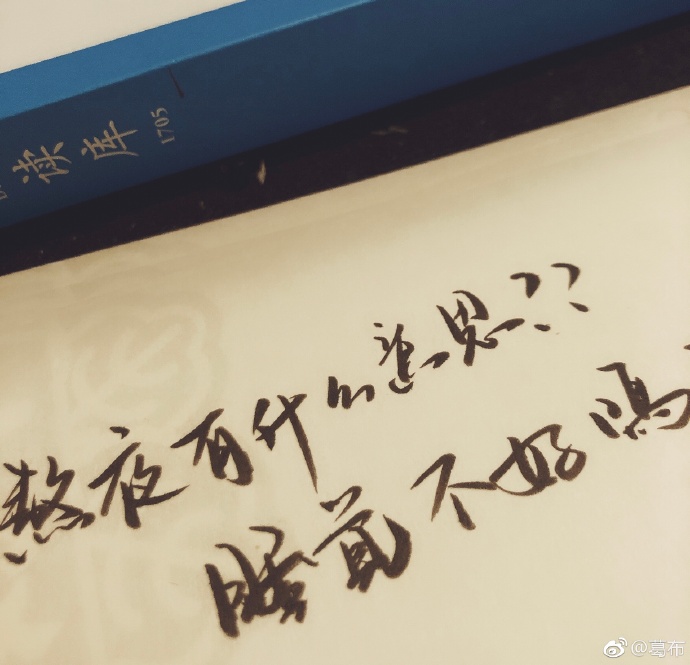 读库 1705
熬夜有什么意思??
睡觉不好吗
@葛布